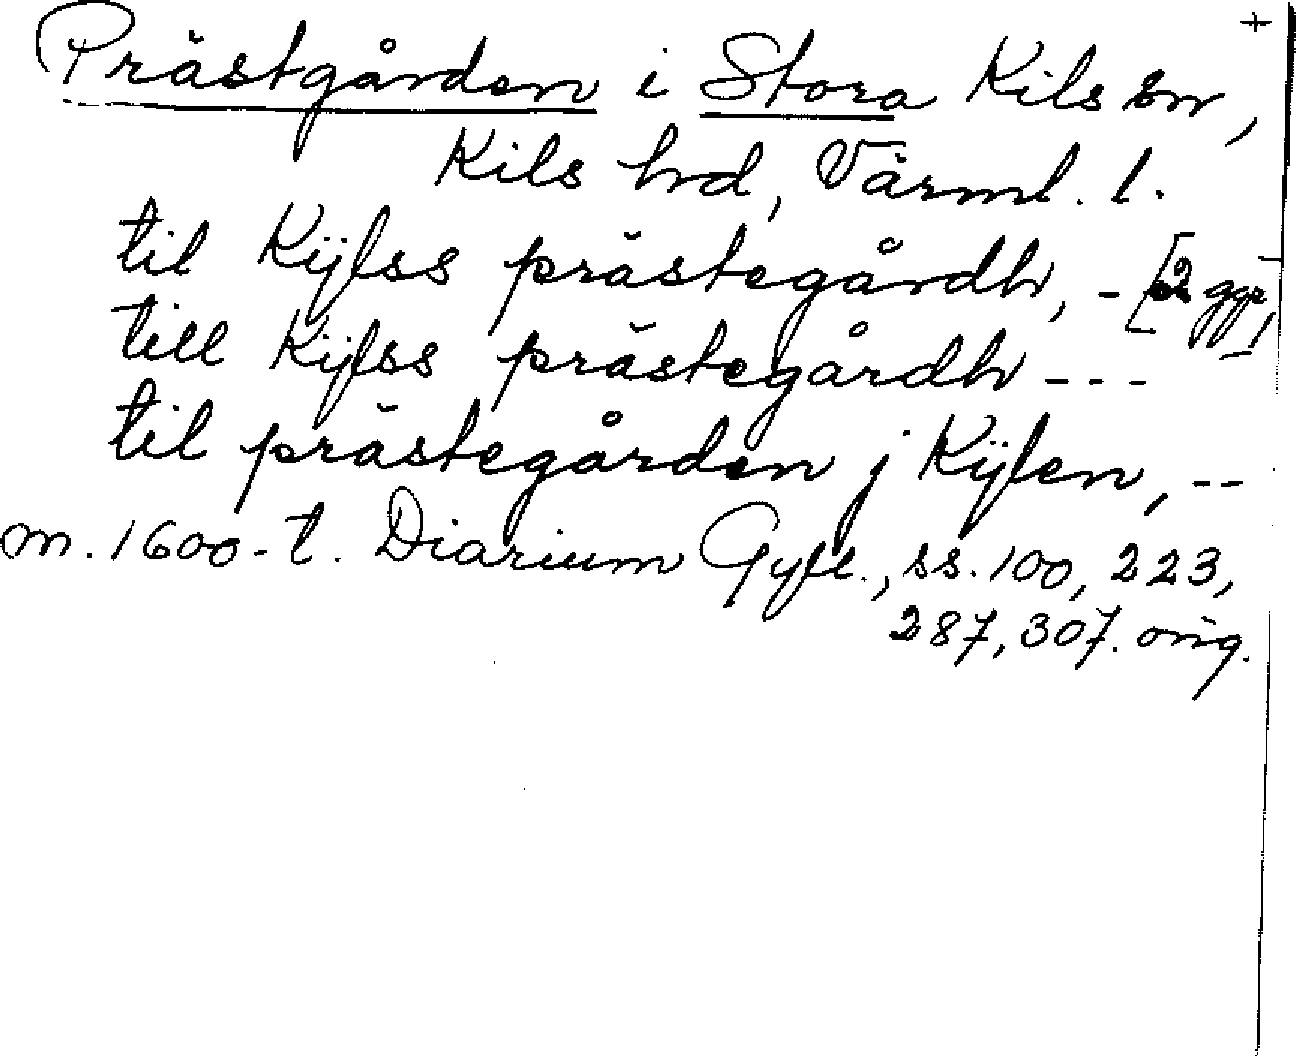 +
Prästgården i Stora Kils sn,
Kils hd, Värml. l.
til Kÿlss prästegårdh, - [2 ggr],
till Kÿlss prästegårdh ---
til prästegården j Kÿlen, --
m. 1600-t. Diarium Gyll., ss. 100, 223,
287, 307. orig.